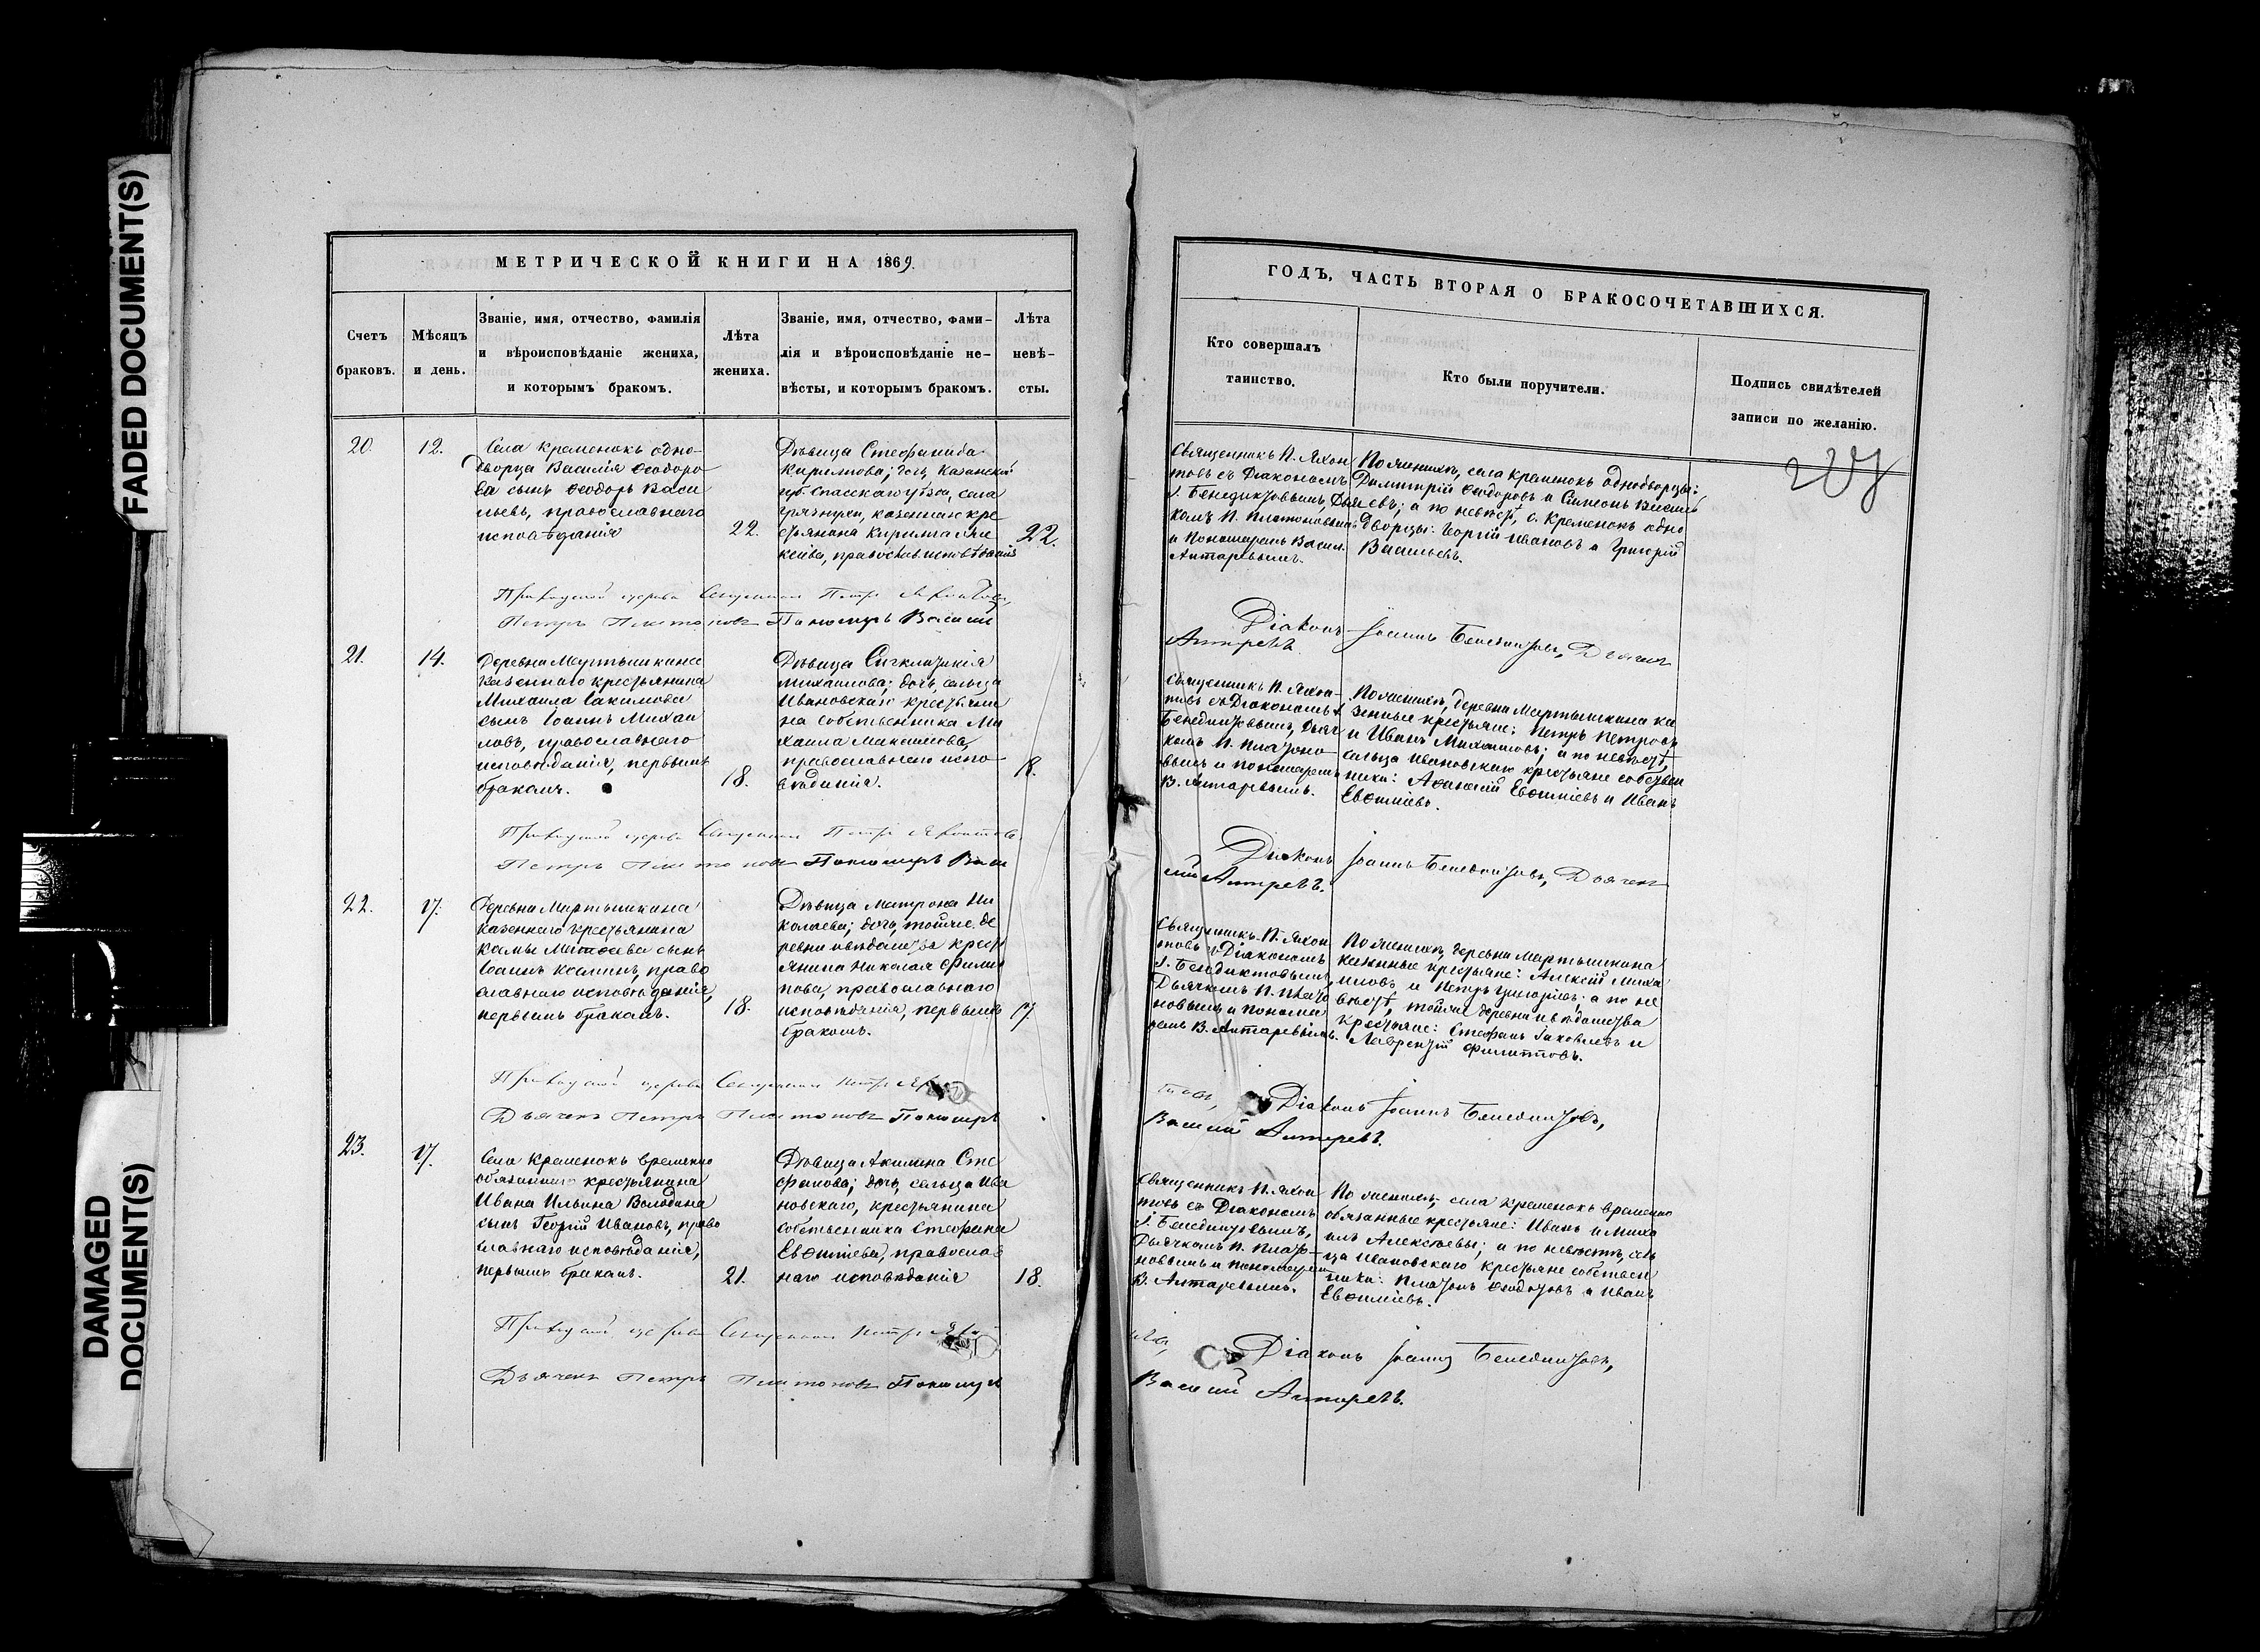 FADED DOCUMENT(S)
DAMAGED
DOCUMENT(S)
МЕТРИЧЕСКОЙ КНИГИ НА 1869.
Счетъ
браковъ.
Мѣсяцъ
и день.
Званіе, имя, отчество, фамилія
и вѣроисповѣданіе жениха,
и которымъ бракомъ.
Лѣта
жениха.
Званіе, имя, отчество, фами-
лія и вѣроисповѣданіе не-
вѣсты, и которымъ бракомъ.
Лѣта
невѣ-
сты.
20.
12.
Села Кременокъ одно-
дворца Василія Ѳеодоро
ва сынъ Ѳеодоръ Васи
льевъ, православнаго
исповѣданія
22.
Дѣвица Стефанида
Кирилова; дочь, Казанской
губ. Спасскаго уѣзда, села
казеннаго кре
стьянина Кирилла Але
ксѣева, православ. исповѣданія
22.
Приходской церкви Священникъ Петръ Яхонтовъ,
Петръ Платоновъ Пономарь Василій
21.
14.
Деревни Мартышкина
казеннаго крестьянина
Михаила Іакимова
сынъ Іоаннъ Михаи
ловъ, православнаго
исповѣданія, первымъ
бракомъ.
18.
Дѣвица Синклитикія
Михаилова; дочь, сельца
Ивановскаго крестьяни
на собственника Ми
хаила Максимова,
православнаго испо-
вѣданія.
18.
Приходской церкви Священникъ Петръ Яхонтовъ
Петръ Платоновъ Пономарь Васи
22.
17.
Деревни Мартышкина
казеннаго крестьянина
Козмы Матѳеева сынъ
Іоаннъ Козминъ, право
славнаго исповѣданія,
первымъ бракомъ.
18.
Дѣвица Матрона Ни
колаева; дочь, тойже де
ревни вѣдомства крест
янина Николая Филип
пова, православнаго
исповѣданія, первымъ
бракомъ.
17.
Приходской церкви Священникъ Петръ Яхон
Дьячекъ Петръ Платоновъ Пономарь
23.
17.
Села Кременокъ временно
обязаннаго крестьянина
Ивана Ильина Володина
сынъ Георгій Ивановъ, право
славнаго исповѣданія,
первымъ бракомъ.
21.
Дѣвица Акилина Сте
фанова; дочь, сельца Ива
новскаго, крестьянина
собственника Стефана
Евѳиміева, православ
наго исповѣданія
18.
Приходской церкви Священникъ Петръ Яхон
Дьячекъ Петръ Платоновъ Пономарь
ГОДЪ, ЧАСТЬ ВТОРАЯ О БРАКОСОЧЕТАВШИХСЯ.
Кто совершалъ
таинство.
Кто были поручители.
Подпись свидѣтелей
записи по желанію.
Священникъ П. Яхон
товъ съ Діакономъ
І. Бенедиктовымъ, Дья
комъ П. Платоновымъ
и Пономаремъ Васил.
Антаревымъ.
По женихѣ, села Кременокъ однодворцы:
Димитрій Ѳеодоровъ и Симеонъ Василь
евъ; а по невѣстѣ, с. Кременокъ одно
дворцы: Георгій Ивановъ и Григорій
Васильевъ.
Діаконъ Іоаннъ Бенедиктовъ, Дьячекъ
Антаревъ.
Священникъ П. Яхон-
товъ съ Діакономъ І.
Бенедиктовымъ, Дьяч
комъ П. Платоно
вымъ и пономаремъ
В. Антаревымъ.
По женихѣ, деревни Мартышкина ка
зенные крестьяне: Петръ Петровъ
и Иванъ Михаиловъ; а по невѣстѣ,
сельца Ивановскаго крестьяне собствен
ники: Аѳанасій Евѳиміевъ и Иванъ
Евѳиміевъ.
Діаконъ Іоаннъ Бенедиктовъ, Дьячекъ
лій Антаревъ.
Священникъ П. Яхон
товъ съ Діакономъ
І. Бенедиктовымъ,
Дьячкомъ П. Плато
новымъ и понома
ремъ В. Антаревымъ.
По женихѣ, деревни Мартышкина
казенные крестьяне: Алексѣй Миха
иловъ и Петръ Григорьевъ; а по не
вѣстѣ, тойже деревни вѣдомства
крестьяне: Стефанъ Іаковлевъ и
Лаврентій Филипповъ.
товъ, Діаконъ Іоаннъ Бенедиктовъ,
Василій Антаревъ.
Священникъ П. Яхон
товъ съ Діакономъ
І. Бенедиктовымъ,
Дьячкомъ П. Плато-
новымъ и пономаремъ
В. Антаревымъ.
По женихѣ, села Кременокъ временно
обязанные крестьяне: Иванъ и Миха
илъ Алексѣевы; а по невѣстѣ, сель
ца Ивановскаго крестьяне собствен
ники: Платонъ Ѳеодотовъ и Иванъ
Евѳиміевъ.
Діаконъ Іоаннъ Бенедиктовъ,
Василій Антаревъ.